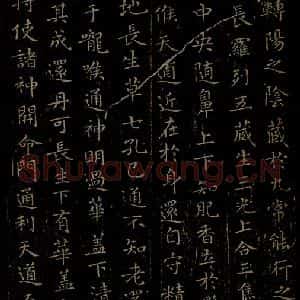 轉陽之陰藏於九常能行之
長羅列五藏生三光上合三焦
中央隨鼻上下知肥香立於
候天道近在於身還自守精
地長生草七孔已通不知老還
于嚨喉通神明過華蓋下清
其成還丹可長生下有華蓋
將使諸神開命門通利天道
Shufawang.CN